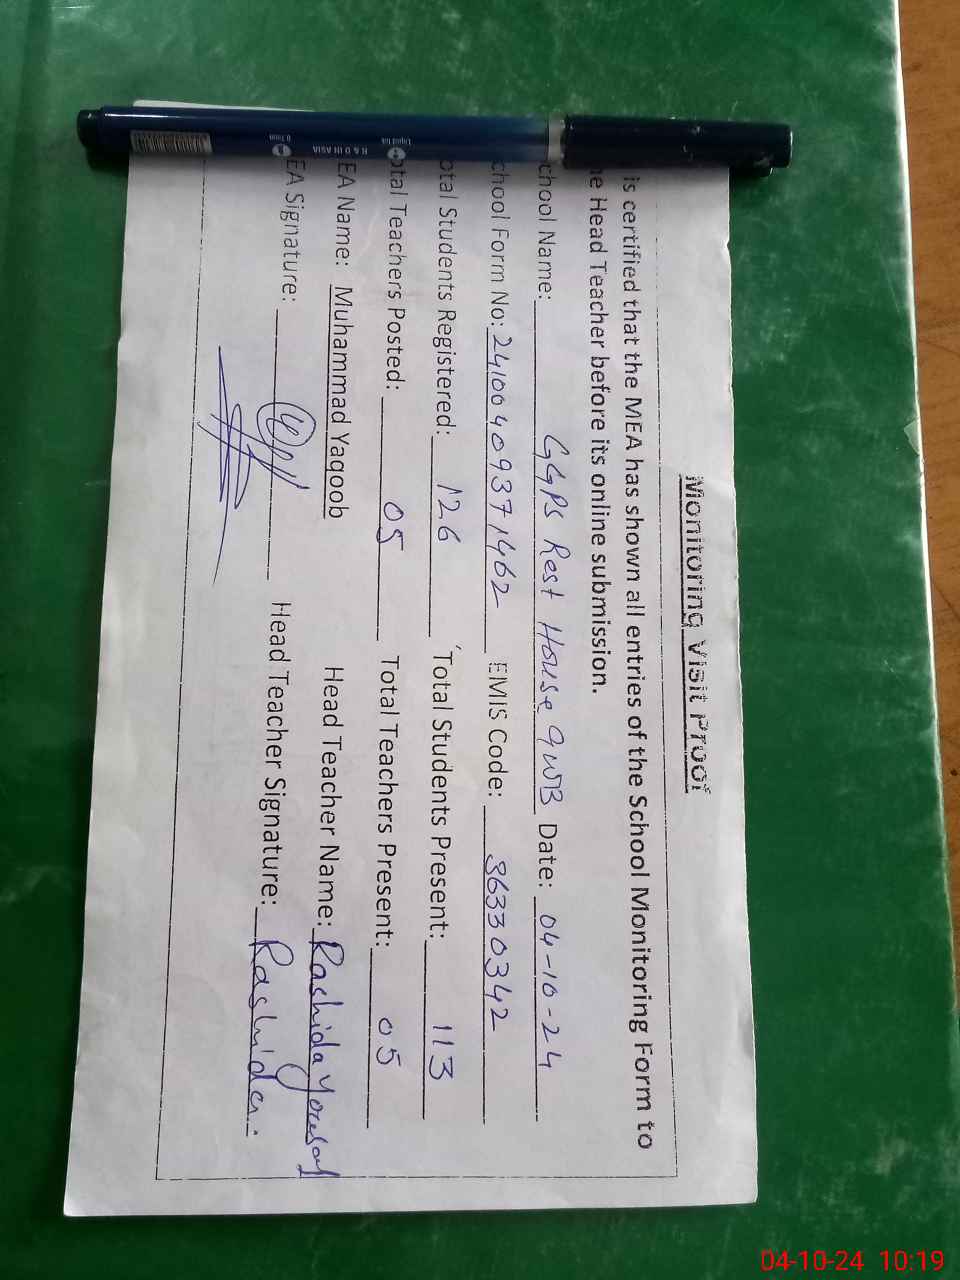 Monitoring Visit Proof
is certified that the MEA has shown all entries of the School Monitoring Form to
he Head Teacher before its online submission.
chool Name: GGPS Rest House 9WB Date: 04-10-24
chool Form No: 24100409371462 EMIS Code: 36330342
otal Students Registered: 126 Total Students Present: 113
otal Teachers Posted: 05 Total Teachers Present: 05
EA Name: Muhammad Yaqoob Head Teacher Name: Rashida Yousaf
EA Signature: Head Teacher Signature: Rashida
Liquid Ink
R & D IN ASIA
0.7mm
04-10-24 10:19